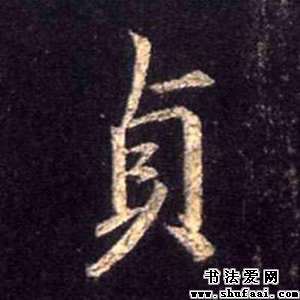 貞
书法爱网
www.shufaai.com